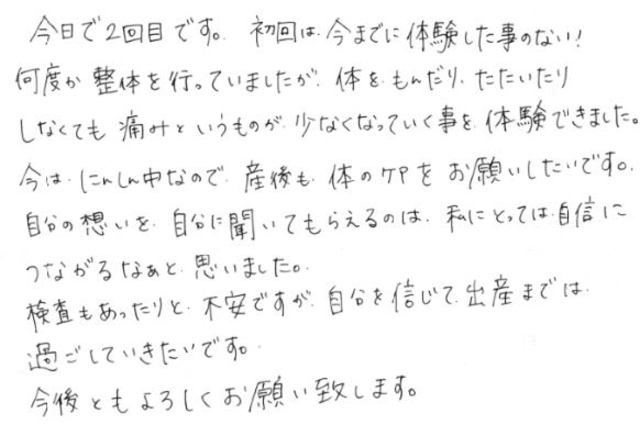 今日で2回目です。 初回は、今までに体験した事のない!
何度か整体を行っていましたが、体を、もんだり、たたいたり
しなくても痛みというものが、少なくなっていく事を、体験できました。
今は、にんしん中なので、産後も、体のケアを お願いしたいです。
自分の想いを、自分に聞いてもらえるのは、私にとっては自信に
つながるなぁと、思いました。
検査もあったりと、不安ですが、自分を信じて、出産までは、
過ごしていきたいです。
今後ともよろしくお願い致します。